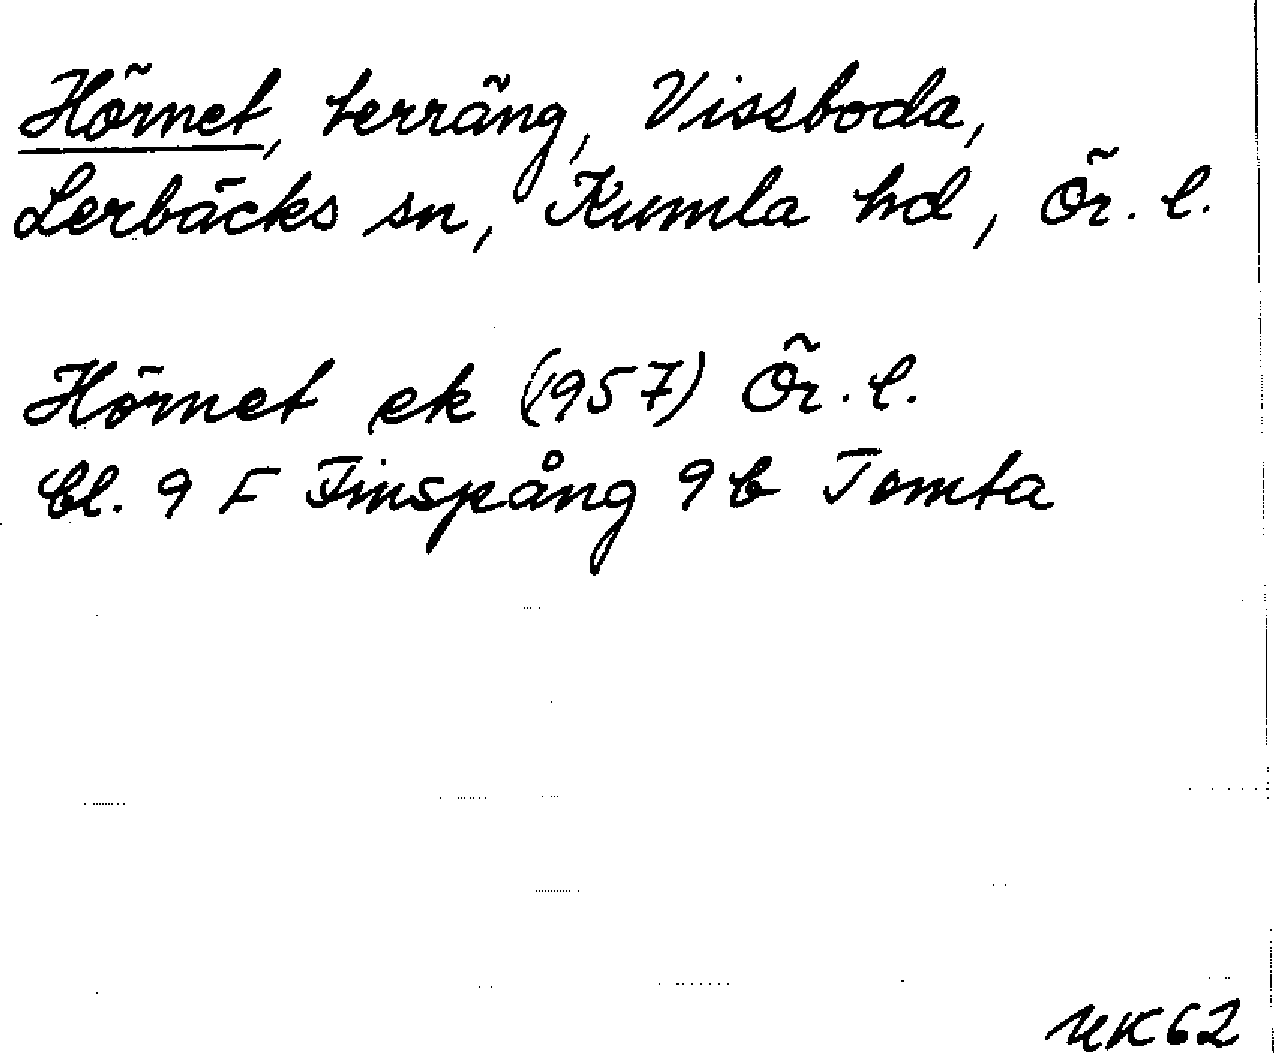 Hörnet, terräng, Vissboda,
Lerbäcks sn, Kumla hd, Ör. l.
Hörnet ek (1957) Ör. l.
bl. 9 F Finspång 9 b Tomta
UK62